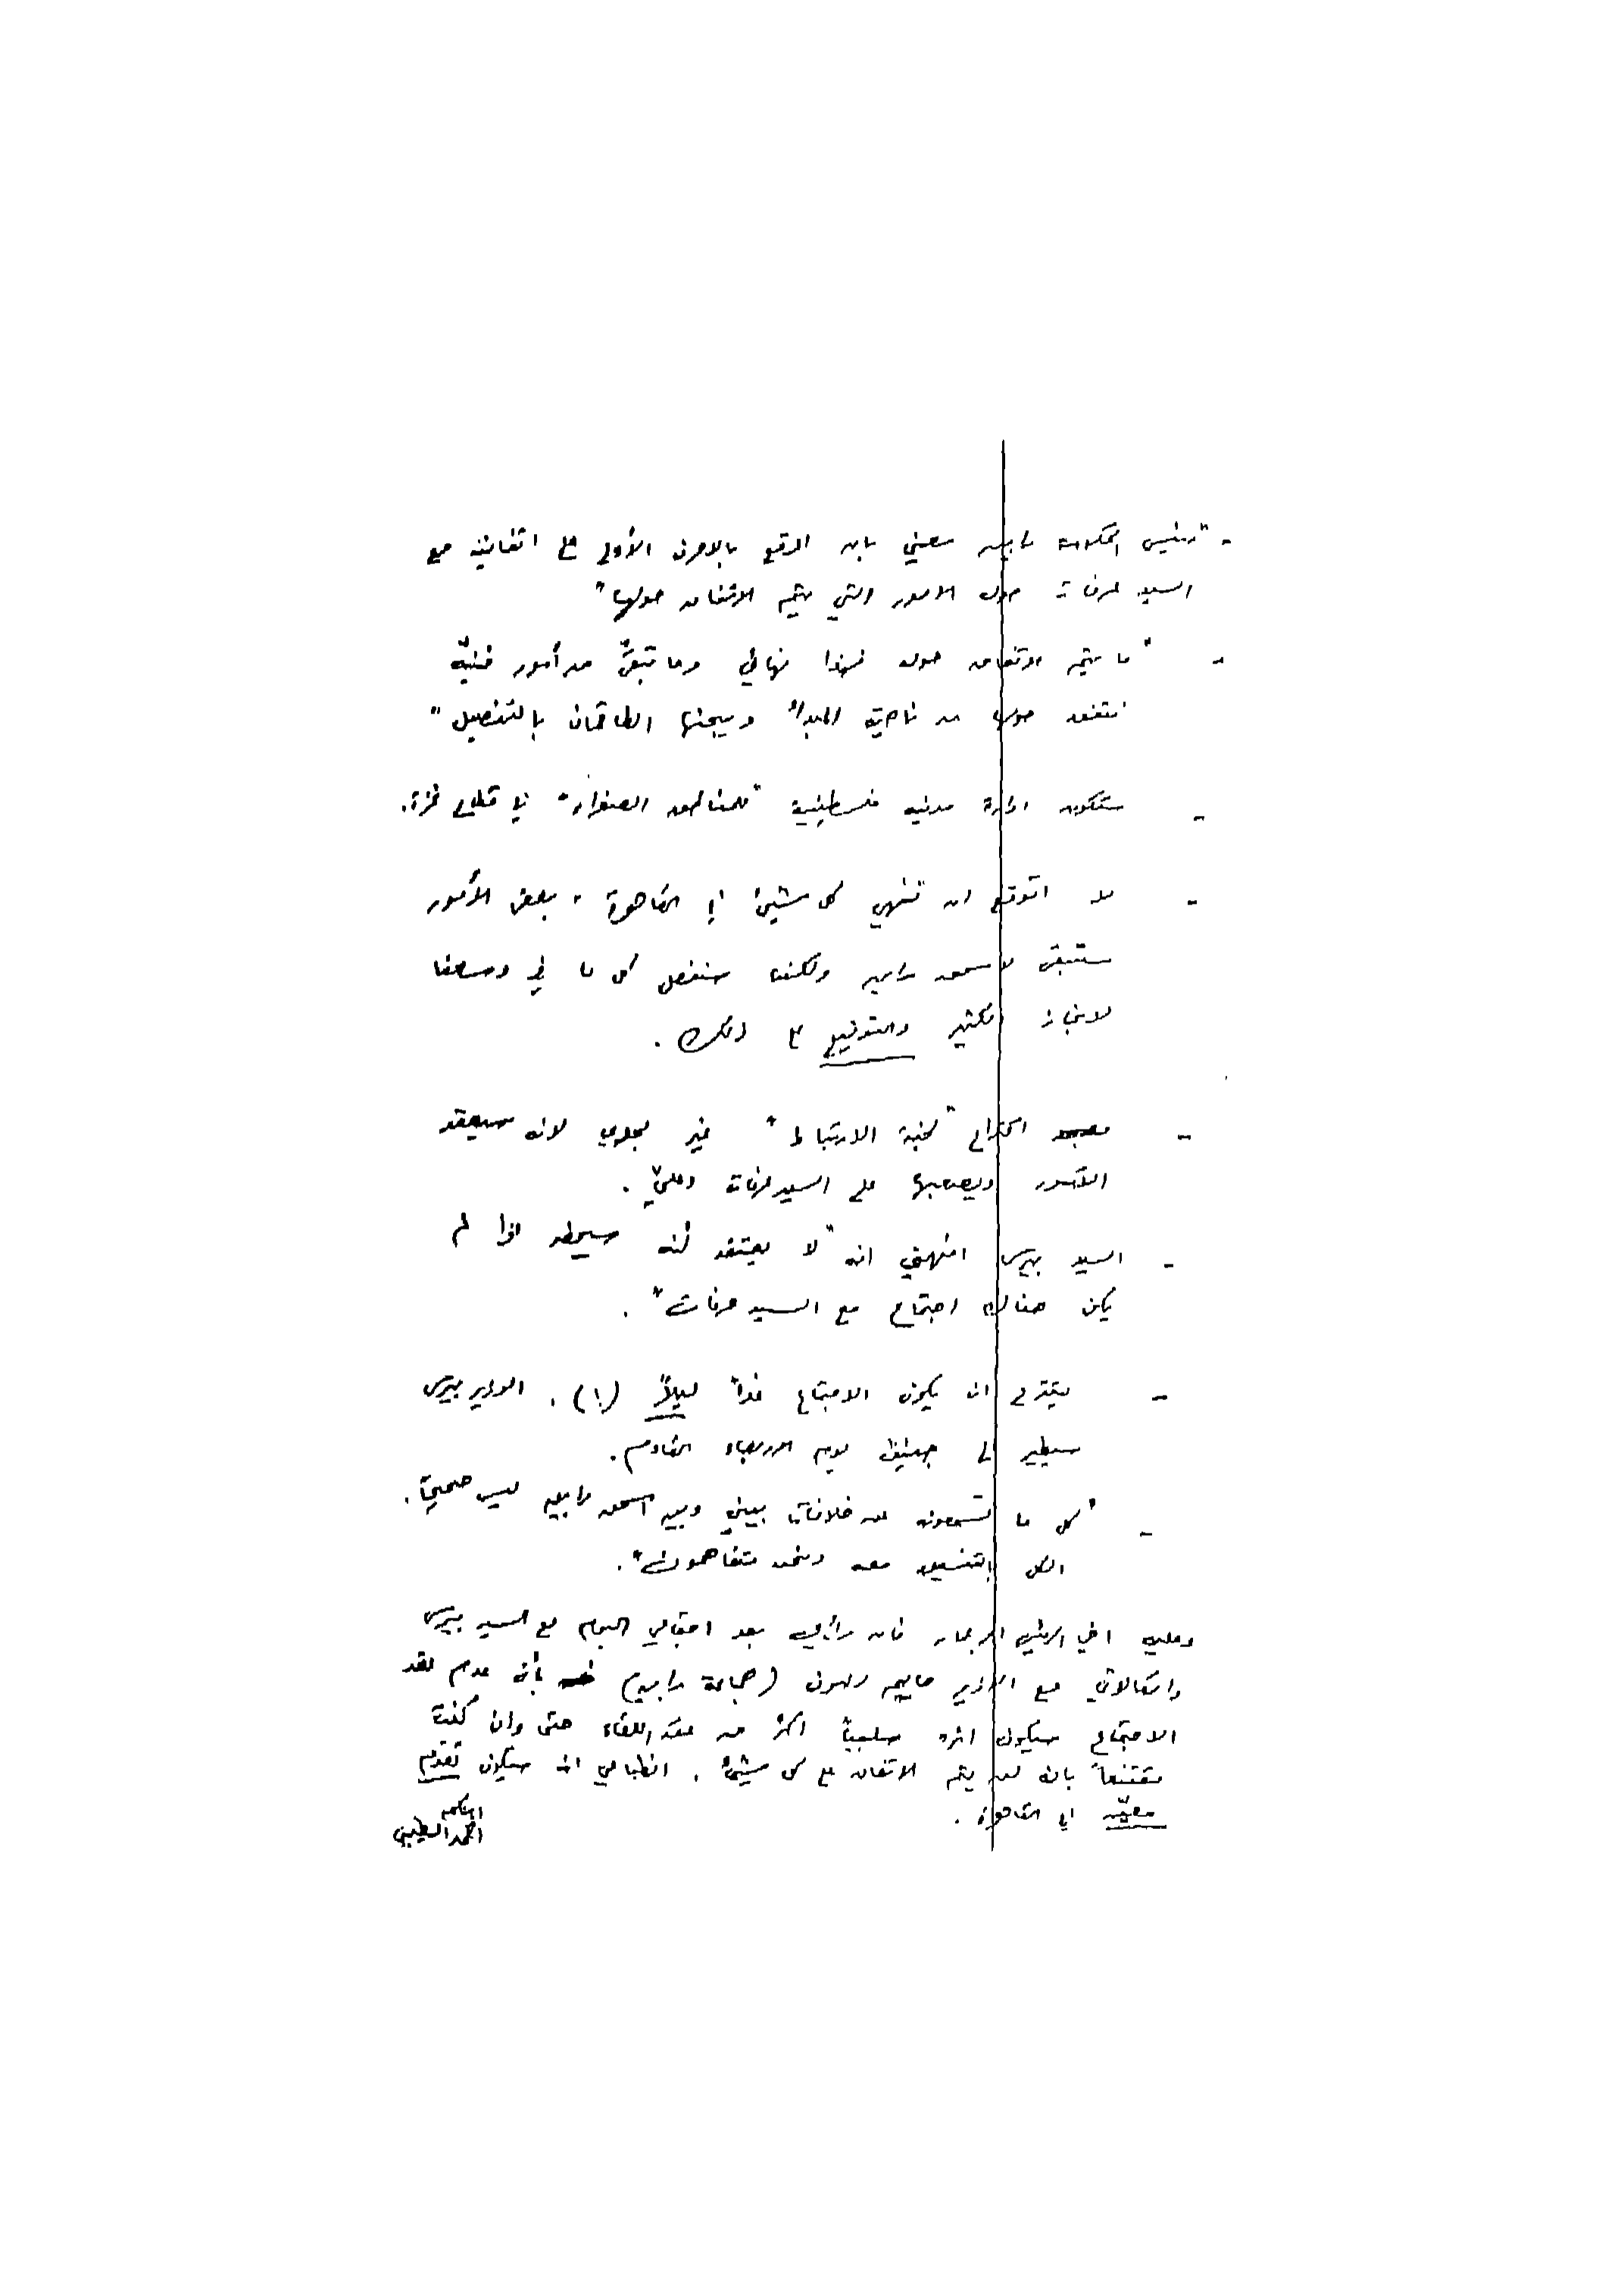 - "رئيس الحكومة رابين معني بان اوقع بالاحرف الأولى على اتفاقية مع
السيد عرفات حول الامور التي يتم الاتفاق حولها"
- "ما يتم الاتفاق حوله فهذا نهائي وما تبقّى من أمور فنيّة
نتفق حولها من ناحية المبدأ ويبحثها الطاقمان بالتفصيل"
- ستكون ادارة مدنيه فلسطينية "للمناطق الصفراء" في قطاع غزة.
- لا اتوقع ان ننهي كل شيئ في القاهرة، بعض الأمور
ستبقى لاسحق رابين ولكننا سنفعل كل ما في وسعنا
لانجاز الكثير والتوقيع على ذلك.
- اقتراح "لجنة الارتباط" غير مجدي لانه سيعقد
الأمور ويصعبها على السيد عرفات وعليّ.
- السيد بيرس افهمني انه "لا يعتقد أنه سيحضر اذا لم
يكن هناك اجتماع مع السيد عرفات".
- يقترح ان يكون الاجتماع غداً ليلاً (!). الوزير بيرس
سيطير الى جنيف يوم الاربعاء القادم.
- "كل ما تسمعونه عن خلافات بيني وبين اسحق رابين ليس صحيحاً.
الكل بالتنسيق معه ونحن متفاهمون".
وعليه اخي الرئيس ابو عمار فان رأيي بعد اجتماعي اليوم مع السيد بيرس
واتصالاتي مع الوزير حاييم رامون (جماعة رابين) بأن عدم عقد
الاجتماع سيكون اثره سلبياً اكثر من عقد اللقاء حتى وان كنت
مقتنعاً بانه لن يتم الاتفاق على كل شيئ. انطباعي انه سيكون تقدم
معيّن في القاهرة.
احمد الطيبي